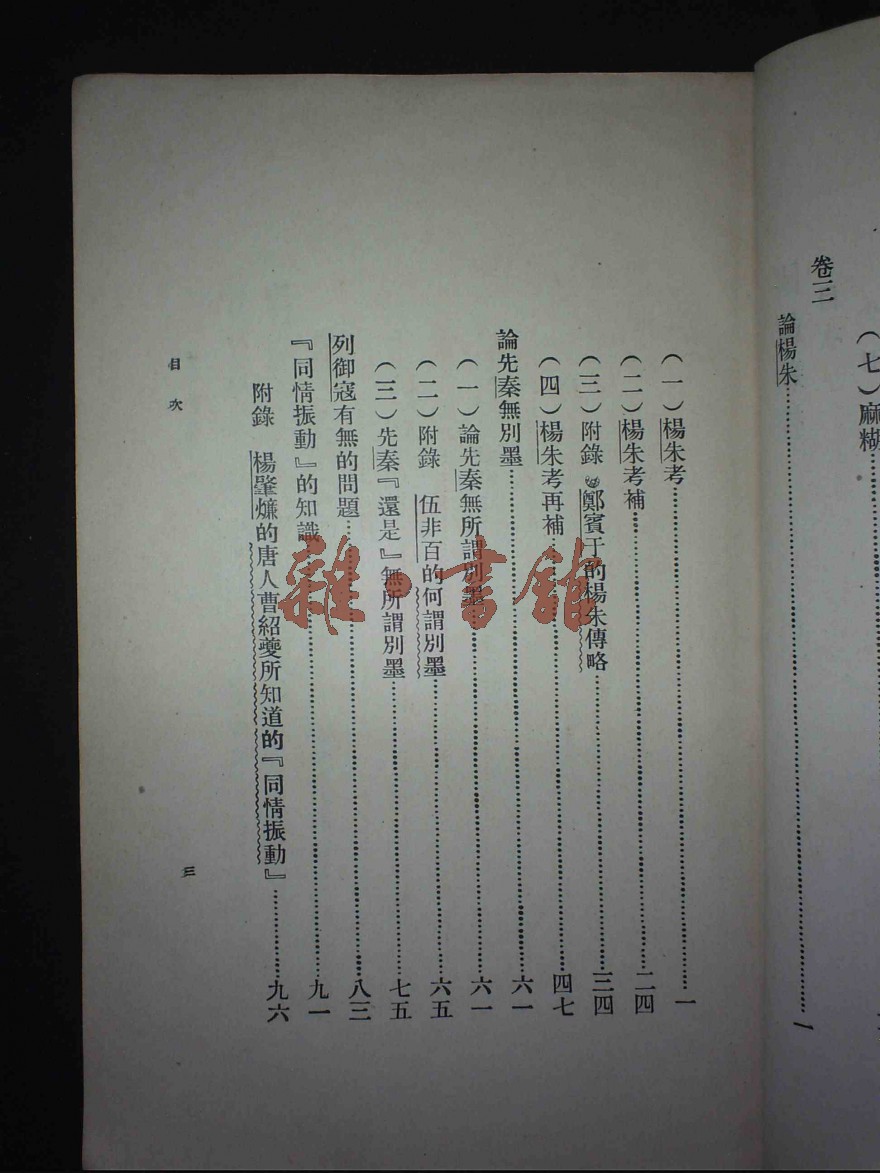 （七）麻糊
卷三
論楊朱……一
（一）楊朱考……一
（二）楊朱考補……二四
（三）附錄 鄭賓于的楊朱傳略……三四
（四）楊朱考再補……四七
論先秦無別墨……六一
（一）論先秦無所謂別墨……六一
（二）附錄 伍非百的何謂別墨……六五
（三）先秦『還是』無所謂別墨……七五
列御寇有無的問題……八三
『同情振動』的知識……九一
附錄 楊肇燫的唐人曹紹夔所知道的『同情振動』……九六
目次
三
雜·書館